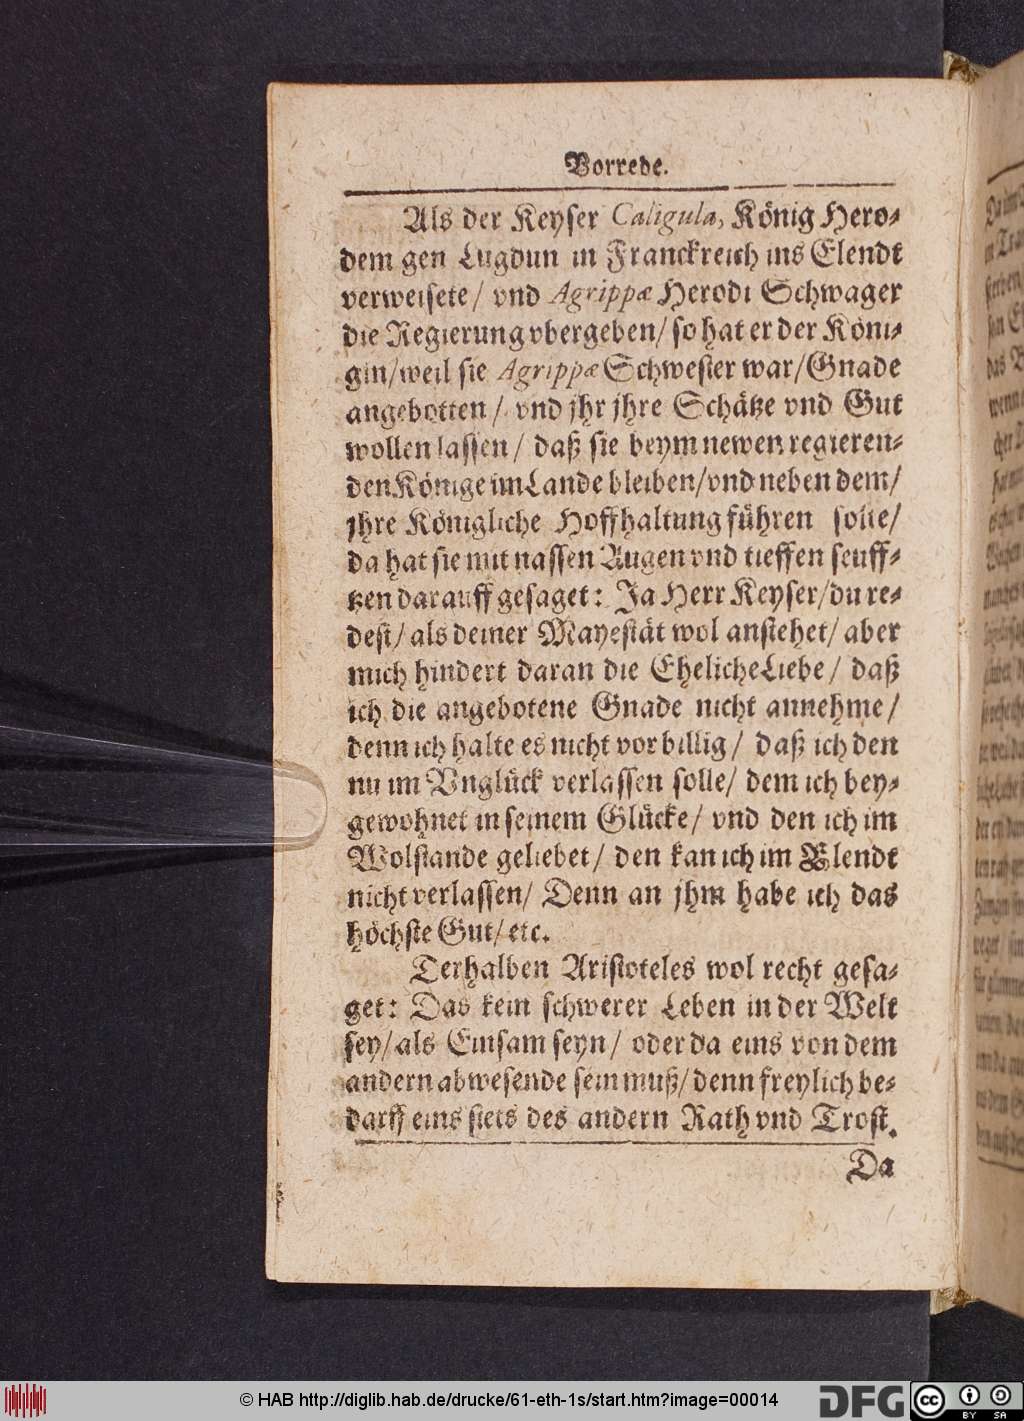 Vorrede.
Als der Keyser Caligula, König Hero-
dem gen Lugdun in Franckreich ins Elendt
verweisete/ vnd Agrippæ Herodi Schwager
die Regierung vbergeben/ so hat er der Köni-
gin/weil sie Agrippæ Schwester war/Gnade
angebotten/ vnd jhr jhre Schätze vnd Gut
wollen lassen/ daß sie beym newen regieren-
den Könige im Lande bleiben/vnd neben dem/
jhre Königliche Hoffhaltung führen solte/
da hat sie mit nassen Augen vnd tieffen seuff-
tzen darauff gesaget: Ja Herr Keyser/du re-
dest/als deiner Mayestät wol anstehet/ aber
mich hindert daran die Eheliche Liebe/ daß
ich die angebotene Gnade nicht annehme/
denn ich halte es nicht vor billig/ daß ich den
nu im Vnglück verlassen solle/ dem ich bey-
gewohnet in seinem Glücke/ vnd den ich im
Wolstande geliebet/ den kan ich im Elendt
nicht verlassen/ Denn an jhm habe ich das
höchste Gut/ etc.
Derhalben Aristoteles wol recht gesa-
get: Das kein schwerer Leben in der Welt
sey/als Einsam seyn/ oder da eins von dem
andern abwesende sein muß/denn freylich be-
darff eins stets des andern Rath vnd Trost.
Da
© HAB http://diglib.hab.de/drucke/61-eth-1s/start.htm?image=00014
DFG
cc BY SA